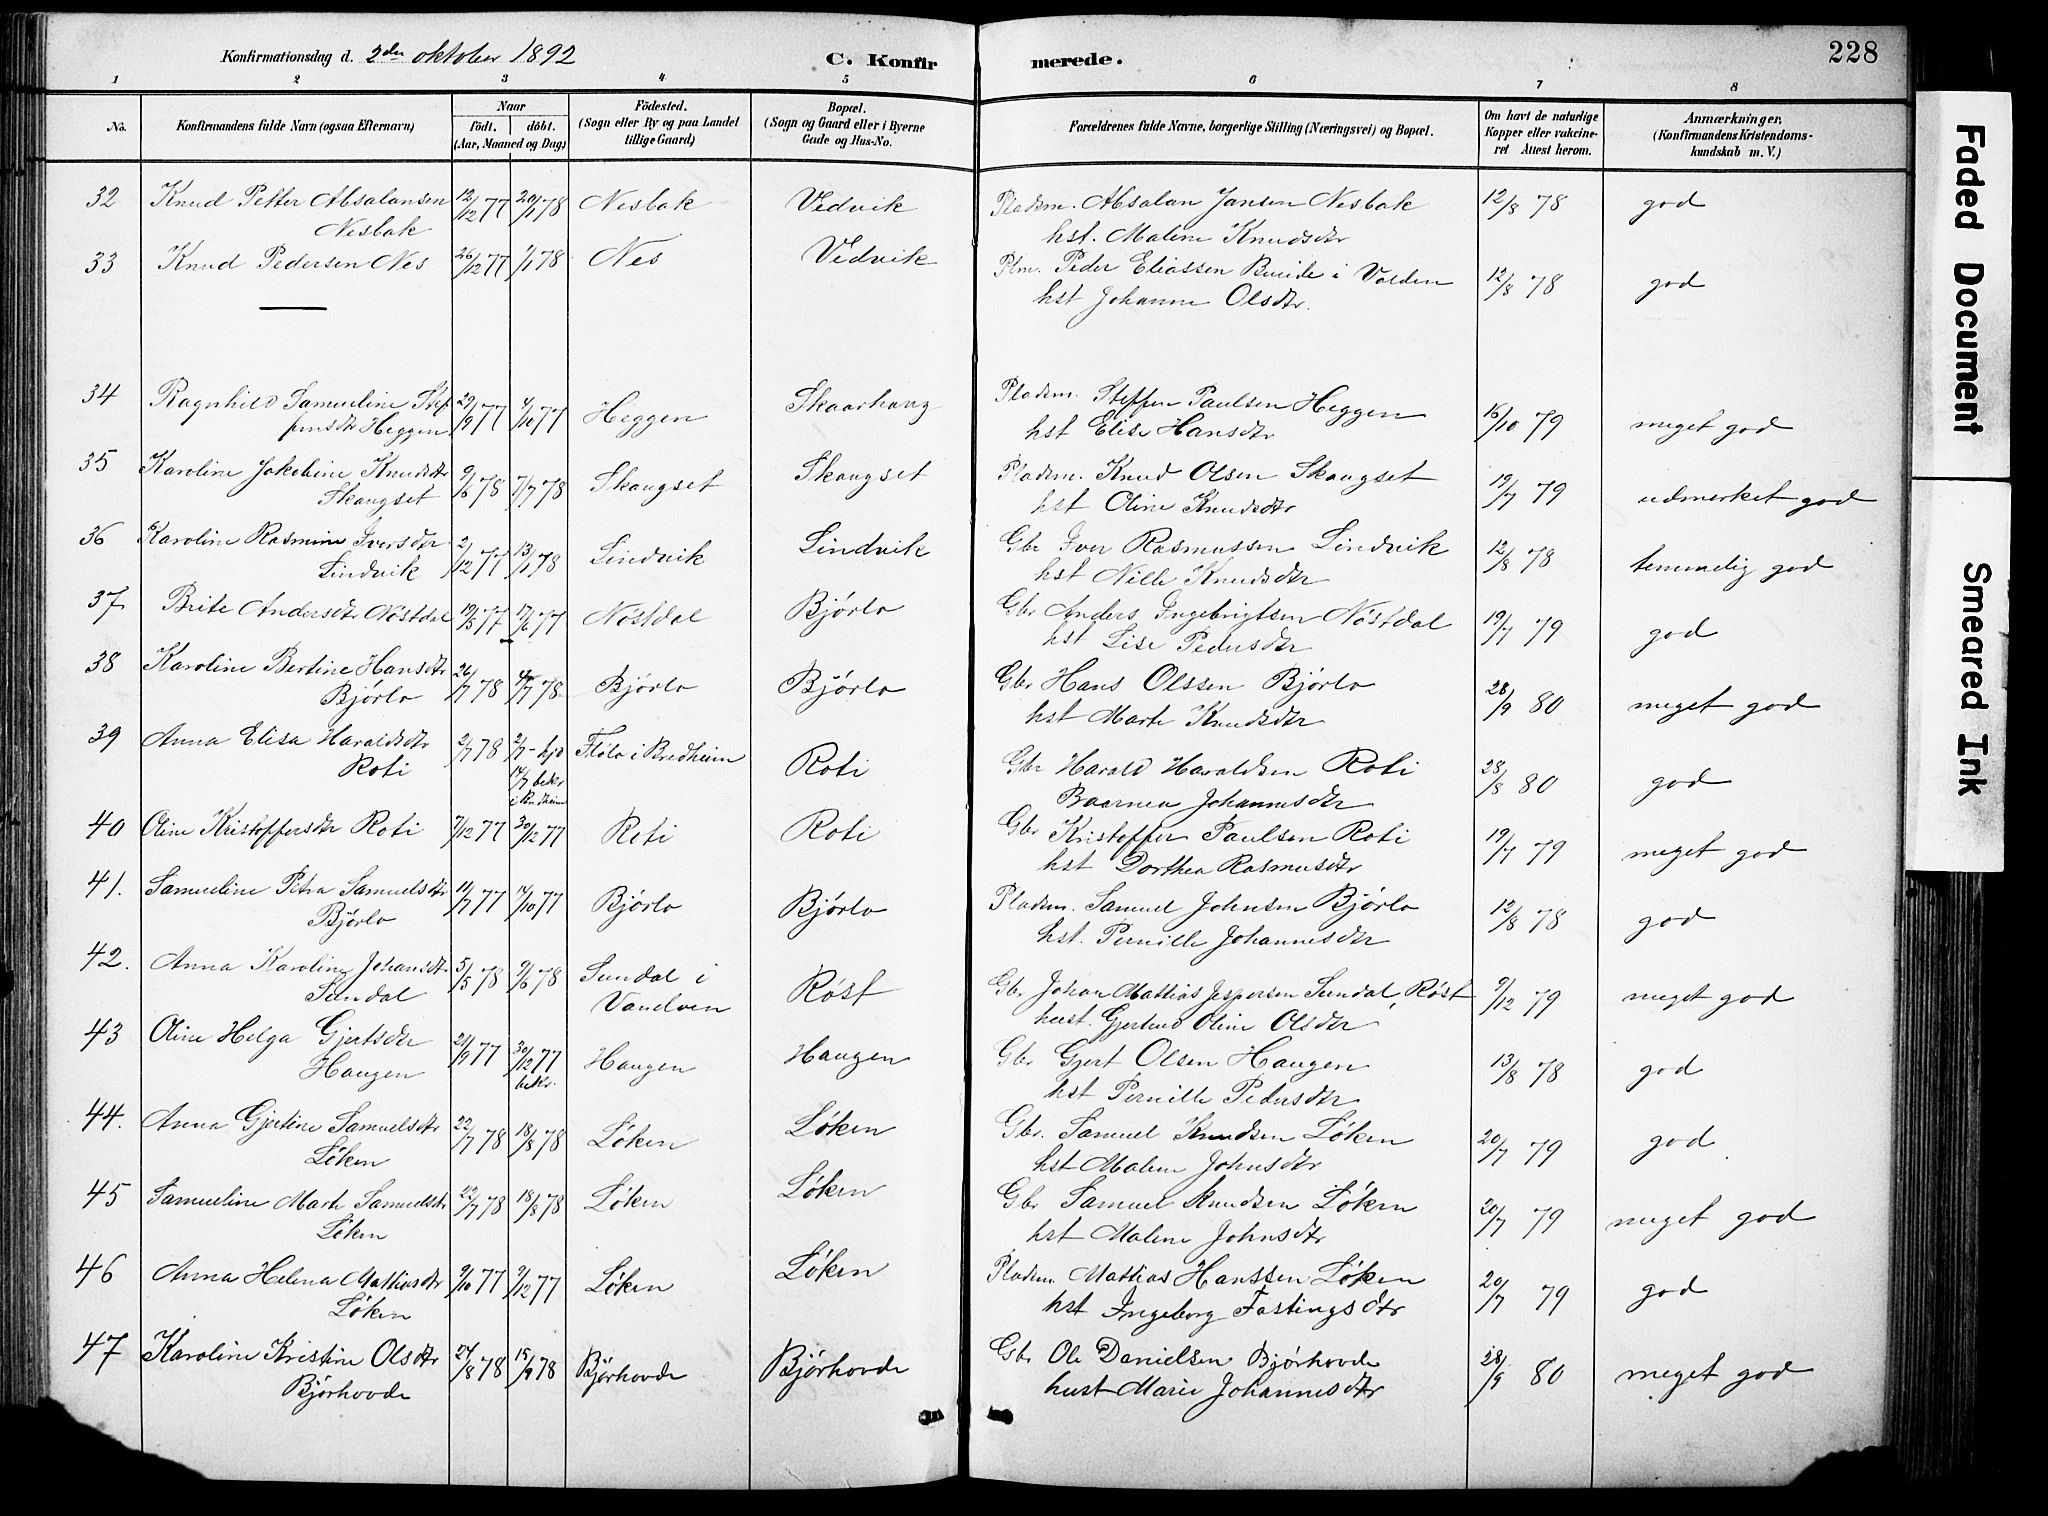 Konfirmationsdag d. 2den oktober 1892
C. Konfirmerede.
228
1 2 3 4 5 6 7 8
No.
Konfirmandens fulde Navn (ogsaa Efternavn)
Naar
födt. döbt.
(Aar, Maaned og Dag)
Födested.
(Sogn eller By og paa Landet
tillige Gaard)
Bopæl.
(Sogn og Gaard eller i Byerne
Gade og Hus-No.
Forældrenes fulde Navne, borgerlige Stilling (Næringsvei) og Bopæl.
Om havt de naturlige
Kopper eller vakcine-
ret Attest herom.
Anmærkninger.
(Konfirmandens Kristendoms-
kundskab m. V.)
32 Knud Petter Absalansen 12/12 77 20/1 78 Nesbak Vedvik Pladsm. Absalan Jansen Nesbak 12/8 78 god
Nesbak hst. Malene Knudsdtr
33 Knud Pedersen Nes 26/12 77 1/1 78 Nes Vedvik Plm. Peder Eliassen Bueide i Volden 12/8 78 god
hst Johanne Olsdtr.
34 Ragnhild Samueline Stef 29/9 77 4/10 77 Heggen Skaarhaug Pladsm. Steffen Paulsen Heggen 16/10 79 meget god
fensdtr Heggen hst Elise Hansdtr
35 Karoline Jakobine Knudsdtr 9/6 78 7/7 78 Skaugset Skaugset Pladsm. Knud Olsen Skaugset 19/7 79 udmerket god
Skaugset hst Oline Knudsdtr
36 Karoline Rasmine Iversdtr 2/12 77 13/1 78 Lindvik Lindvik Gbr Iver Rasmussen Lindvik 12/8 78 temmelig god
Lindvik hst Nille Knudsdtr
37 Brite Andersdtr Nöstdal 19/5 77 17/6 77 Nöstdal Bjørlo Gbr Anders Ingebrigtsen Nöstdal 19/7 79 god
hst Lise Pedersdtr
38 Karoline Bertine Hansdtr 26/7 78 /7 78 Bjørlo Bjørlo Gbr Hans Olssen Bjørlo 28/9 80 meget god
Bjørlo hst Marte Knudsdtr
39 Anna Elisa Haraldsdtr 2/7 78 2/7 - hjd Flølo i Bredheim Roti Gbr Harald Haraldsen Roti 28/8 80 god
Roti 14/7 bekr Baarnea Johannesdtr
40 Oline Kristoffersdtr Roti 7/12 77 30/12 77 Roti Roti Gbr Kristoffer Paulsen Roti 19/7 79 meget god
hst Dorthea Rasmusdtr
41. Samueline Petra Samuelsdtr 19/7 77 14/10 77 Bjørlo Bjørlo Pladsm. Samuel Johnsen Bjørlo 12/8 78 god
Bjørlo hst. Pernille Johannesdtr
42. Anna Karoline Johansdtr 5/5 78 9/6 78 Sundal i Røst Gbr Johan Mattias Jespersen Sundal, Røst 9/12 79 meget god
Sundal Vandven hust. Gjertrud Oline Olsdtr
43 Oline Helga Gjertsdtr 29/9 77 30/12 77 Haugen Haugen Gbr Gjert Olsen Haugen 13/8 78 god
Haugen bekr. hst Pernille Pedersdtr
44. Anna Gjertine Samuelsdtr 22/7 78 18/8 78 Løken Løken Gbr. Samuel Knudsen Løken 20/7 79 god
Løken hst Malene Johnsdtr
45 Samueline Marte Samuelsdtr 22/7 78 18/8 78 Løken Løken Gbr Samuel Knudsen Løken 20/7 79 meget god
Løken hst Malene Johnsdtr
46 Anna Helena Mattiasdtr 9/10 77 9/12 77 Løken Løken Pladsm Mattias Hanssen Løken 20/7 79 god
Løken hst Ingeborg Fastingsdtr
47 Karoline Kristine Olsdtr 24/8 78 15/9 78 Bjørhovde Bjørhovde Gbr Ole Danielsen Bjørhovde 28/9 80 meget god
Bjørhovde hust Marie Johannesdtr
Faded Document
Smeared Ink